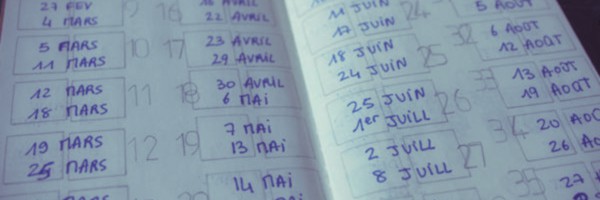 27 FEV
4 MARS
9
5 MARS
11 MARS
10
12 MARS
18 MARS
11
19 MARS
25 MARS
12
16
22 AVRIL
17
23 AVRIL
29 AVRIL
18
30 AVRIL
6 MAi
19
7 MAi
13 MAi
14 MAi
11 JUIN
17 JUIN
24
18 JUIN
24 JUIN
25
25 JUIN
1er JUILL
26
2 JUILL
8 JUILL
27
5 AOUT
32
6 AOUT
12 AOUT
33
13 AOUT
19 AOUT
34
20
26
35
27